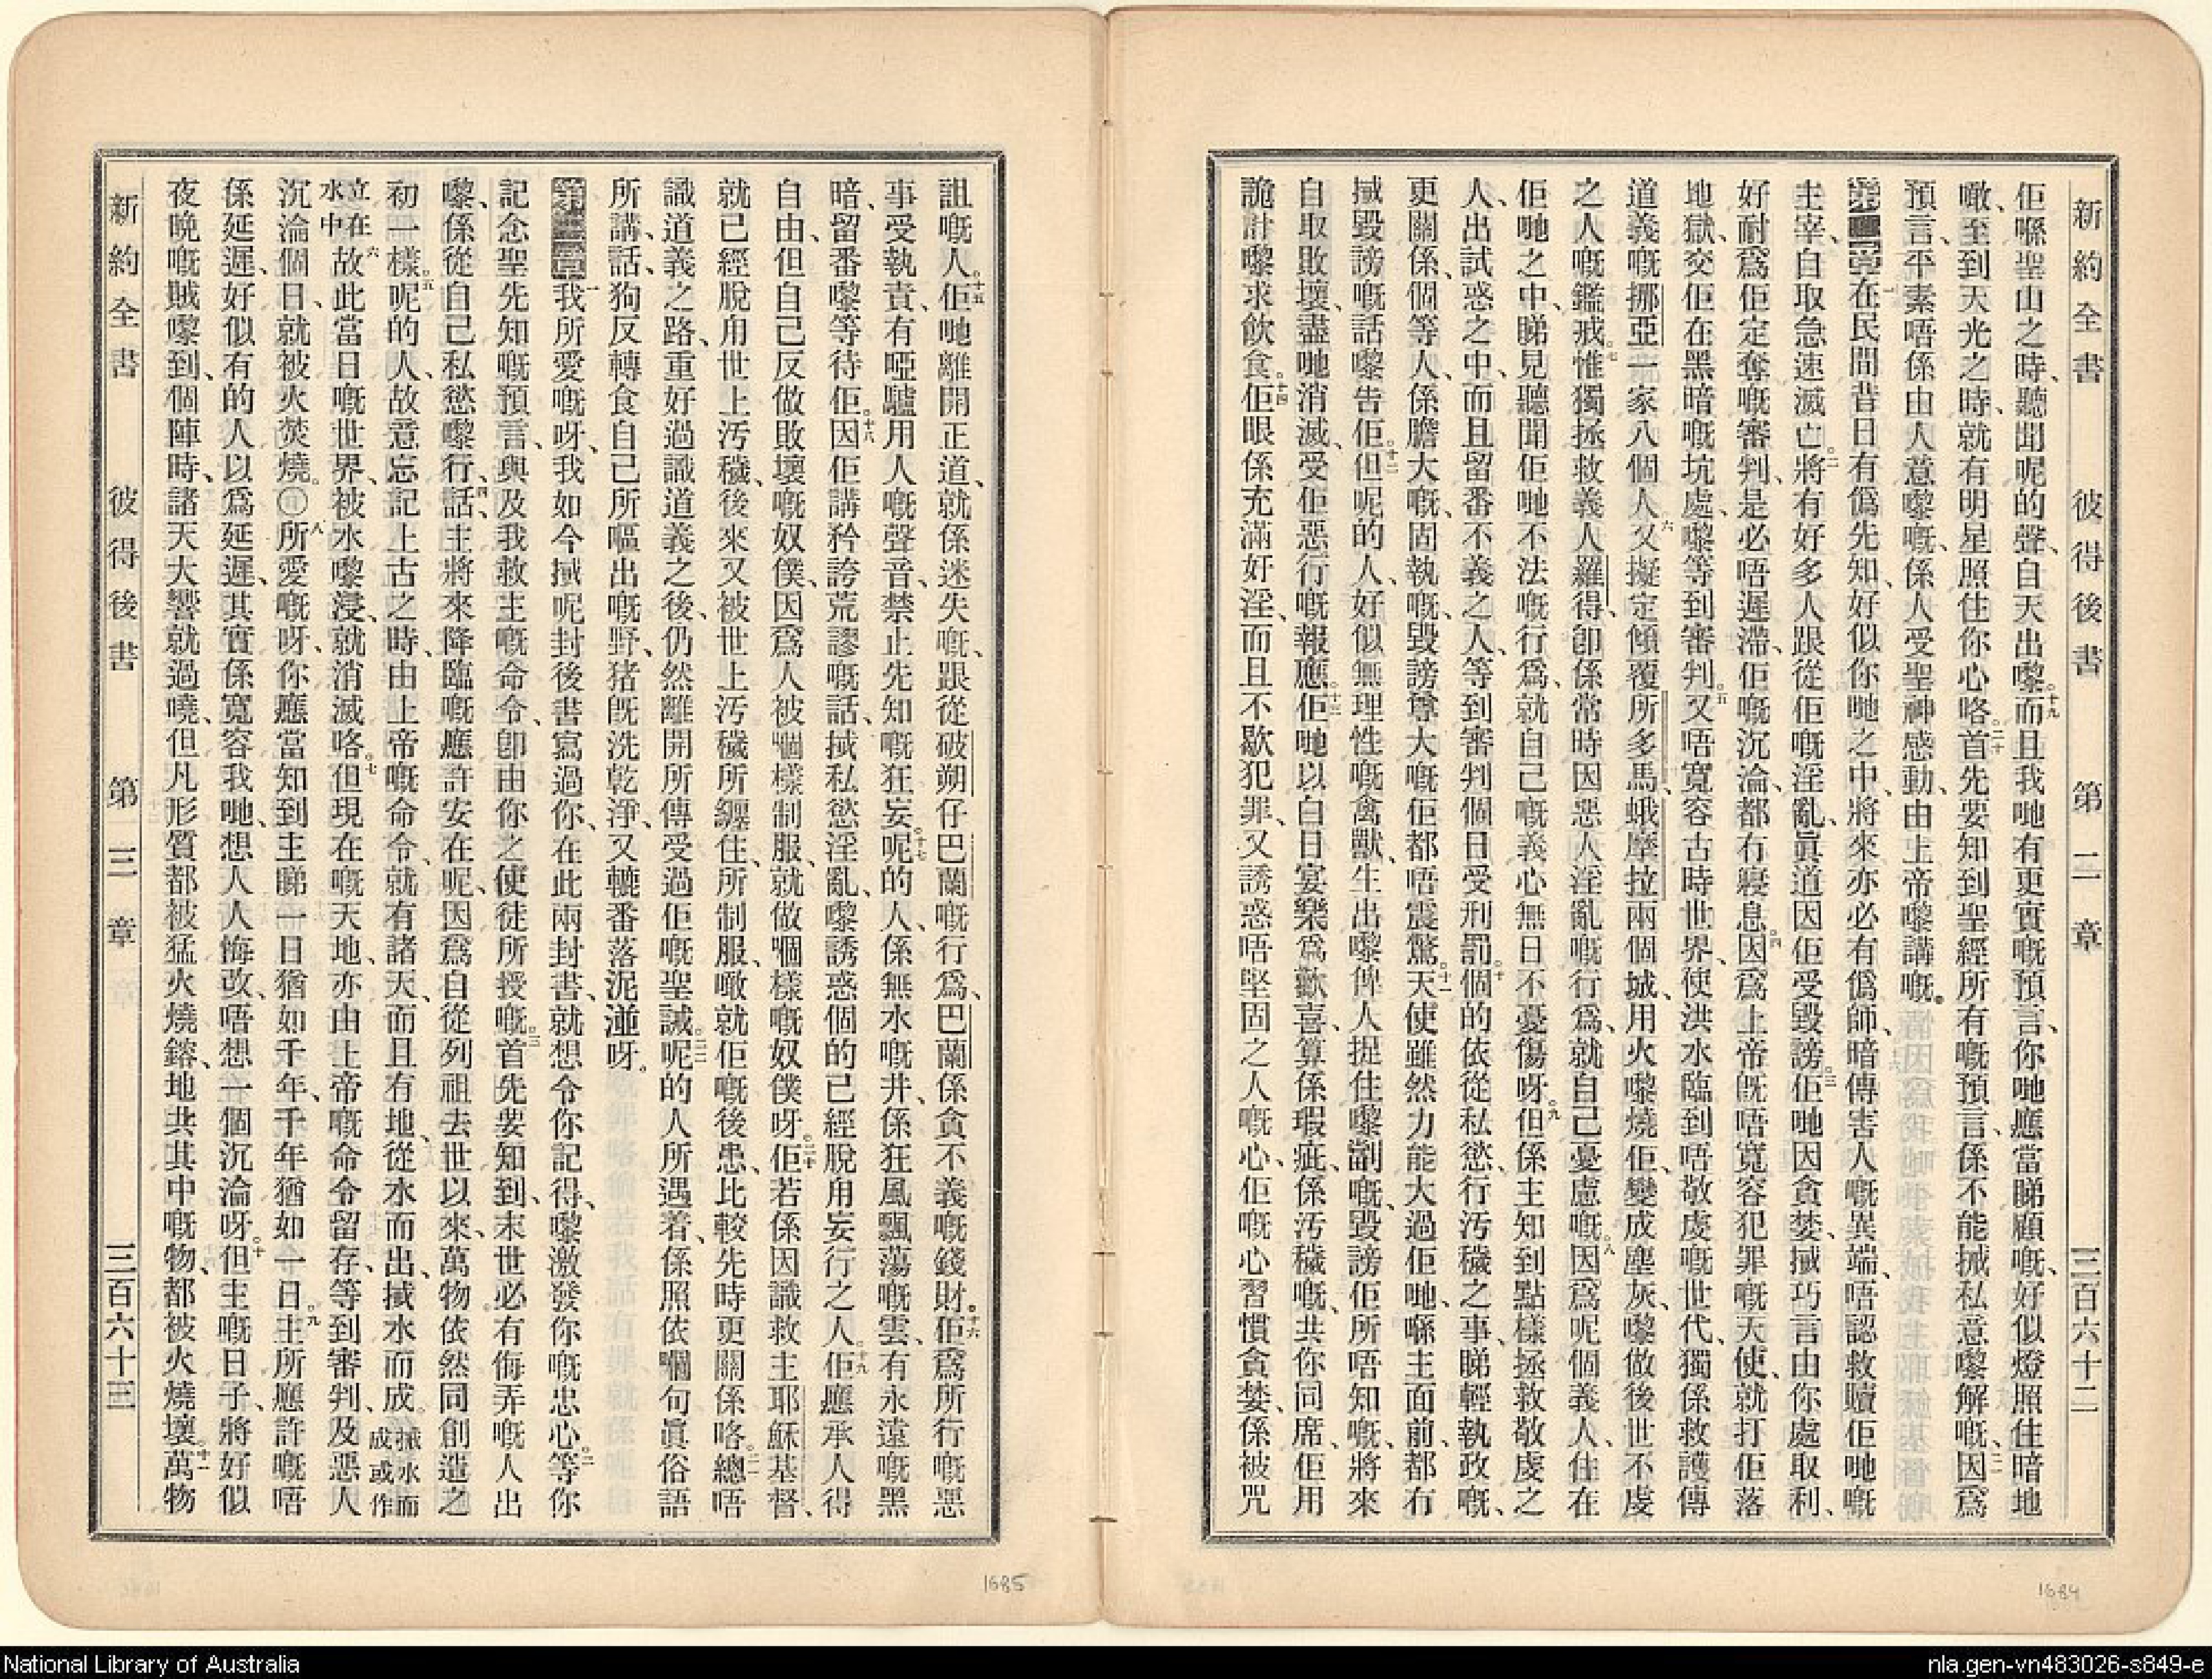 新約全書 彼得後書 第二章 三百六十二
佢喺聖山之時、聽聞呢的聲、自天出嚟。十九而且我哋有更實嘅預言、你哋應當睇顧嘅、好似燈照住暗地
噉、至到天光之時、就有明星照住你心咯。二十首先要知到聖經所有嘅預言、係不能搣私意嚟解嘅、二一因爲
預言、平素唔係由人意嚟嘅、係人受聖神感動、由上帝嚟講嘅。
第二章一在民間昔日有僞先知、好似你哋之中、將來亦必有僞師、暗傳害人嘅異端、唔認救贖佢哋嘅
主宰、自取急速滅亡。二將有好多人跟從佢嘅淫亂、眞道因佢受毀謗。三佢哋因貪婪、搣巧言由你處取利、
好耐爲佢定奪嘅審判、是必唔遲滯、佢嘅沉淪、都冇寢息。四因爲上帝旣唔寬容犯罪嘅天使、就打佢落
地獄、交佢在黑暗嘅坑處、嚟等到審判。五又唔寬容古時世界、使洪水臨到唔敬虔嘅世代、獨係救護傳
道義嘅挪亞一家八個人、六又擬定傾覆所多馬、蛾摩拉兩個城、用火嚟燒佢、變成塵灰、嚟做後世不虔
之人嘅鑑戒。七惟獨拯救義人羅得、卽係常時因惡人淫亂嘅行爲、就自己憂慮嘅。八因爲呢個義人、住在
佢哋之中、睇見聽聞佢哋不法嘅行爲、就自己嘅義心無日不憂傷呀。九但係主知到點樣拯救敬虔之
人、出試惑之中、而且留番不義之人、等到審判個日受刑罰。十個的依從私慾、行汚穢之事、睇輕執政嘅、
更關係、個等人、係膽大嘅、固執嘅、毀謗尊大嘅佢都唔震驚。十一天使雖然力能大過佢哋、喺主面前、都冇
搣毀謗嘅話嚟告佢。十二但呢的人、好似無理性嘅禽獸、生出嚟俾人捉住嚟劏嘅、毀謗佢所唔知嘅、將來
自取敗壞、盡哋消滅、受佢惡行嘅報應。十三佢哋以白日宴樂爲歡喜、算係瑕疵、係汚穢嘅、共你同席、佢用
詭計嚟求飮食。十四佢眼係充滿奸淫、而且不歇犯罪、又誘惑唔堅固之人嘅心、佢嘅心習慣貪婪、係被咒
1684
新約全書 彼得後書 第三章 三百六十三
詛嘅人。十五佢哋離開正道、就係迷失嘅、跟從破朔仔巴蘭嘅行爲、巴蘭係貪不義嘅錢財。十六佢爲所行嘅惡
事受執責、有啞驢用人嘅聲音、禁止先知嘅狂妄。十七呢的人、係無水嘅井、係狂風飄蕩嘅雲、有永遠嘅黑
暗、留番嚟等待佢。十八因佢講矜誇荒謬嘅話、搣私慾淫亂、嚟誘惑個的已經脫用妄行之人。十九佢應承人得
自由、但自己反做敗壞嘅奴僕、因爲人被嗰樣制服、就做嗰樣嘅奴僕呀。二十佢若係因識救主耶穌基督、
就已經脫用世上汚穢、後來又被世上汚穢所纏住、所制服、噉就佢嘅後患、比較先時更關係咯。二一總唔
識道義之路、重好過識道義之後、仍然離開所傳受過佢嘅聖誡。二二呢的人所遇着、係照依嗰句眞俗語
所講、話、狗反轉食自己所嘔出嘅、野猪旣洗乾淨、又轆番落泥湴呀。
第三章一我所愛嘅呀、我如今搣呢封後書寫過你、在此兩封書、就想令你記得、嚟激發你嘅忠心。二等你
記念聖先知嘅預言、與及我救主嘅命令、卽由你之使徒所授嘅。三首先要知到、末世必有侮弄嘅人出
嚟、係從自己私慾嚟行、四話、主將來降臨嘅應許安在呢、因爲自從列祖去世以來、萬物依然同創造之
初一樣。五呢的人、故意忘記上古之時、由上帝嘅命令、就有諸天、而且有地、從水而出、搣水而成。搣水而成或作
立在水中六故此當日嘅世界、被水嚟浸、就消滅咯。七但現在嘅天地、亦由上帝嘅命令留存、等到審判、及惡人
沉淪個日、就被火焚燒。〇八所愛嘅呀、你應當知到主睇一日猶如千年、千年猶如一日。九主所應許嘅唔
係延遲、好似有的人以爲延遲、其實係寬容我哋、想人人悔改、唔想一個沉淪呀。十但主嘅日子、將好似
夜晚嘅賊嚟到、個陣時、諸天大響就過嘵、但凡形質都被猛火燒鎔、地共其中嘅物、都被火燒壞。十一萬物
1685
National Library of Australia
nla.gen-vn483026-s849-e